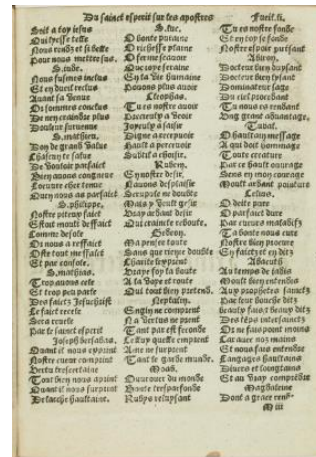 Du sainct esperit sur les apostres Fueil. li.
Soit a toy iesus
Qui lyesse telle
Nous rends et si belle
Pour nous mettre sus.
S. iude.
Nous fusmes inclus
Et en dueil reclus
Auant sa venue
Or sommes conclus
De nen craindre plus
Douleur suruenue
S. mathieu.
Don de grand value
Chascun te salue
De vouloir parfaict
Bien auons congneue
Loeuure chere tenue
Quen nous as parfaict
S. philippe.
Nostre piteux faict
Estoit moult deffaict
Comme desole
Or nous a reffaict
Oste tout meffaict
Et par console.
S. mathias.
Trop auons cele
Et trop peu parle
Des faictz Jesuchrist
Le faict recele
Sera reuele
Par le sainct esperit
Joseph bersabas.
Quant il nous esprint
Nostre cueur comprint
Vertu trescertaine
Tout bien nous aprint
Quant il nous surprint
De lache haultaine.
S. luc.
O bonte putaine
O richesse plaine
O ferme scauoir
Que ioye seraine
En la vie humaine
Pouons plus auoir
Cleophas.
Tu es nostre auoir
Parceu a veoir
Joyeulx a saisir
Digne a receuoir
Hault a perceuoir
Subtil a choisir.
Ruben.
En nostre desir,
Nauons desplaisir
Scrupule ne doubte
Mais y veult gesir
Vray ardant desir
Qui craincte reboute.
Gedeon.
Ma pensee toute
Sans que riens doubte
Charite seprient
Vraye foy la boute
A sa dope et toute
Qui tout bien prétend.
Neptalin.
Engin ne comprent
N a vertus ne prent
Tant par est feconde
Celluy quelle emprent
Ame ne surprent
Tant le garde munde.
Moab.
Ouurouer du monde
Bonte tresparfonde
Rubys reluysant
Tu es nostre fonde
Et en toy se fonde
Nostre espoir puissant
Abiron.
Docteur bien duysant
Docteur bien lysant
Dominateur saige
Du ciel pourchant
Tu nous es rendant
Ung grant aduantage.
Tubal.
O haultain message
A qui doit hommage
Toute creature
Par ce hault ouurage
Sens en mon courage
Moult ardant pointure
Celius.
O deite pure
O parfaict dure
Par cueurs
Ta bonte nous cure
Nostre bien procure
En faictz et en ditz
Abacuth
Au temps de iadis
Moult bien entendis
Aux prophetes sainctz
Par leur bouche ditz
beaulx faictz beaux ditz
Des iesu intersainctz
Or ne sais point moins
Car auec noz mains
Et nous fais entendre
Langages haultains
Diuers et loingtains
Et au vray comprendre
Magdaleine
Dont a grace rendre
M iii